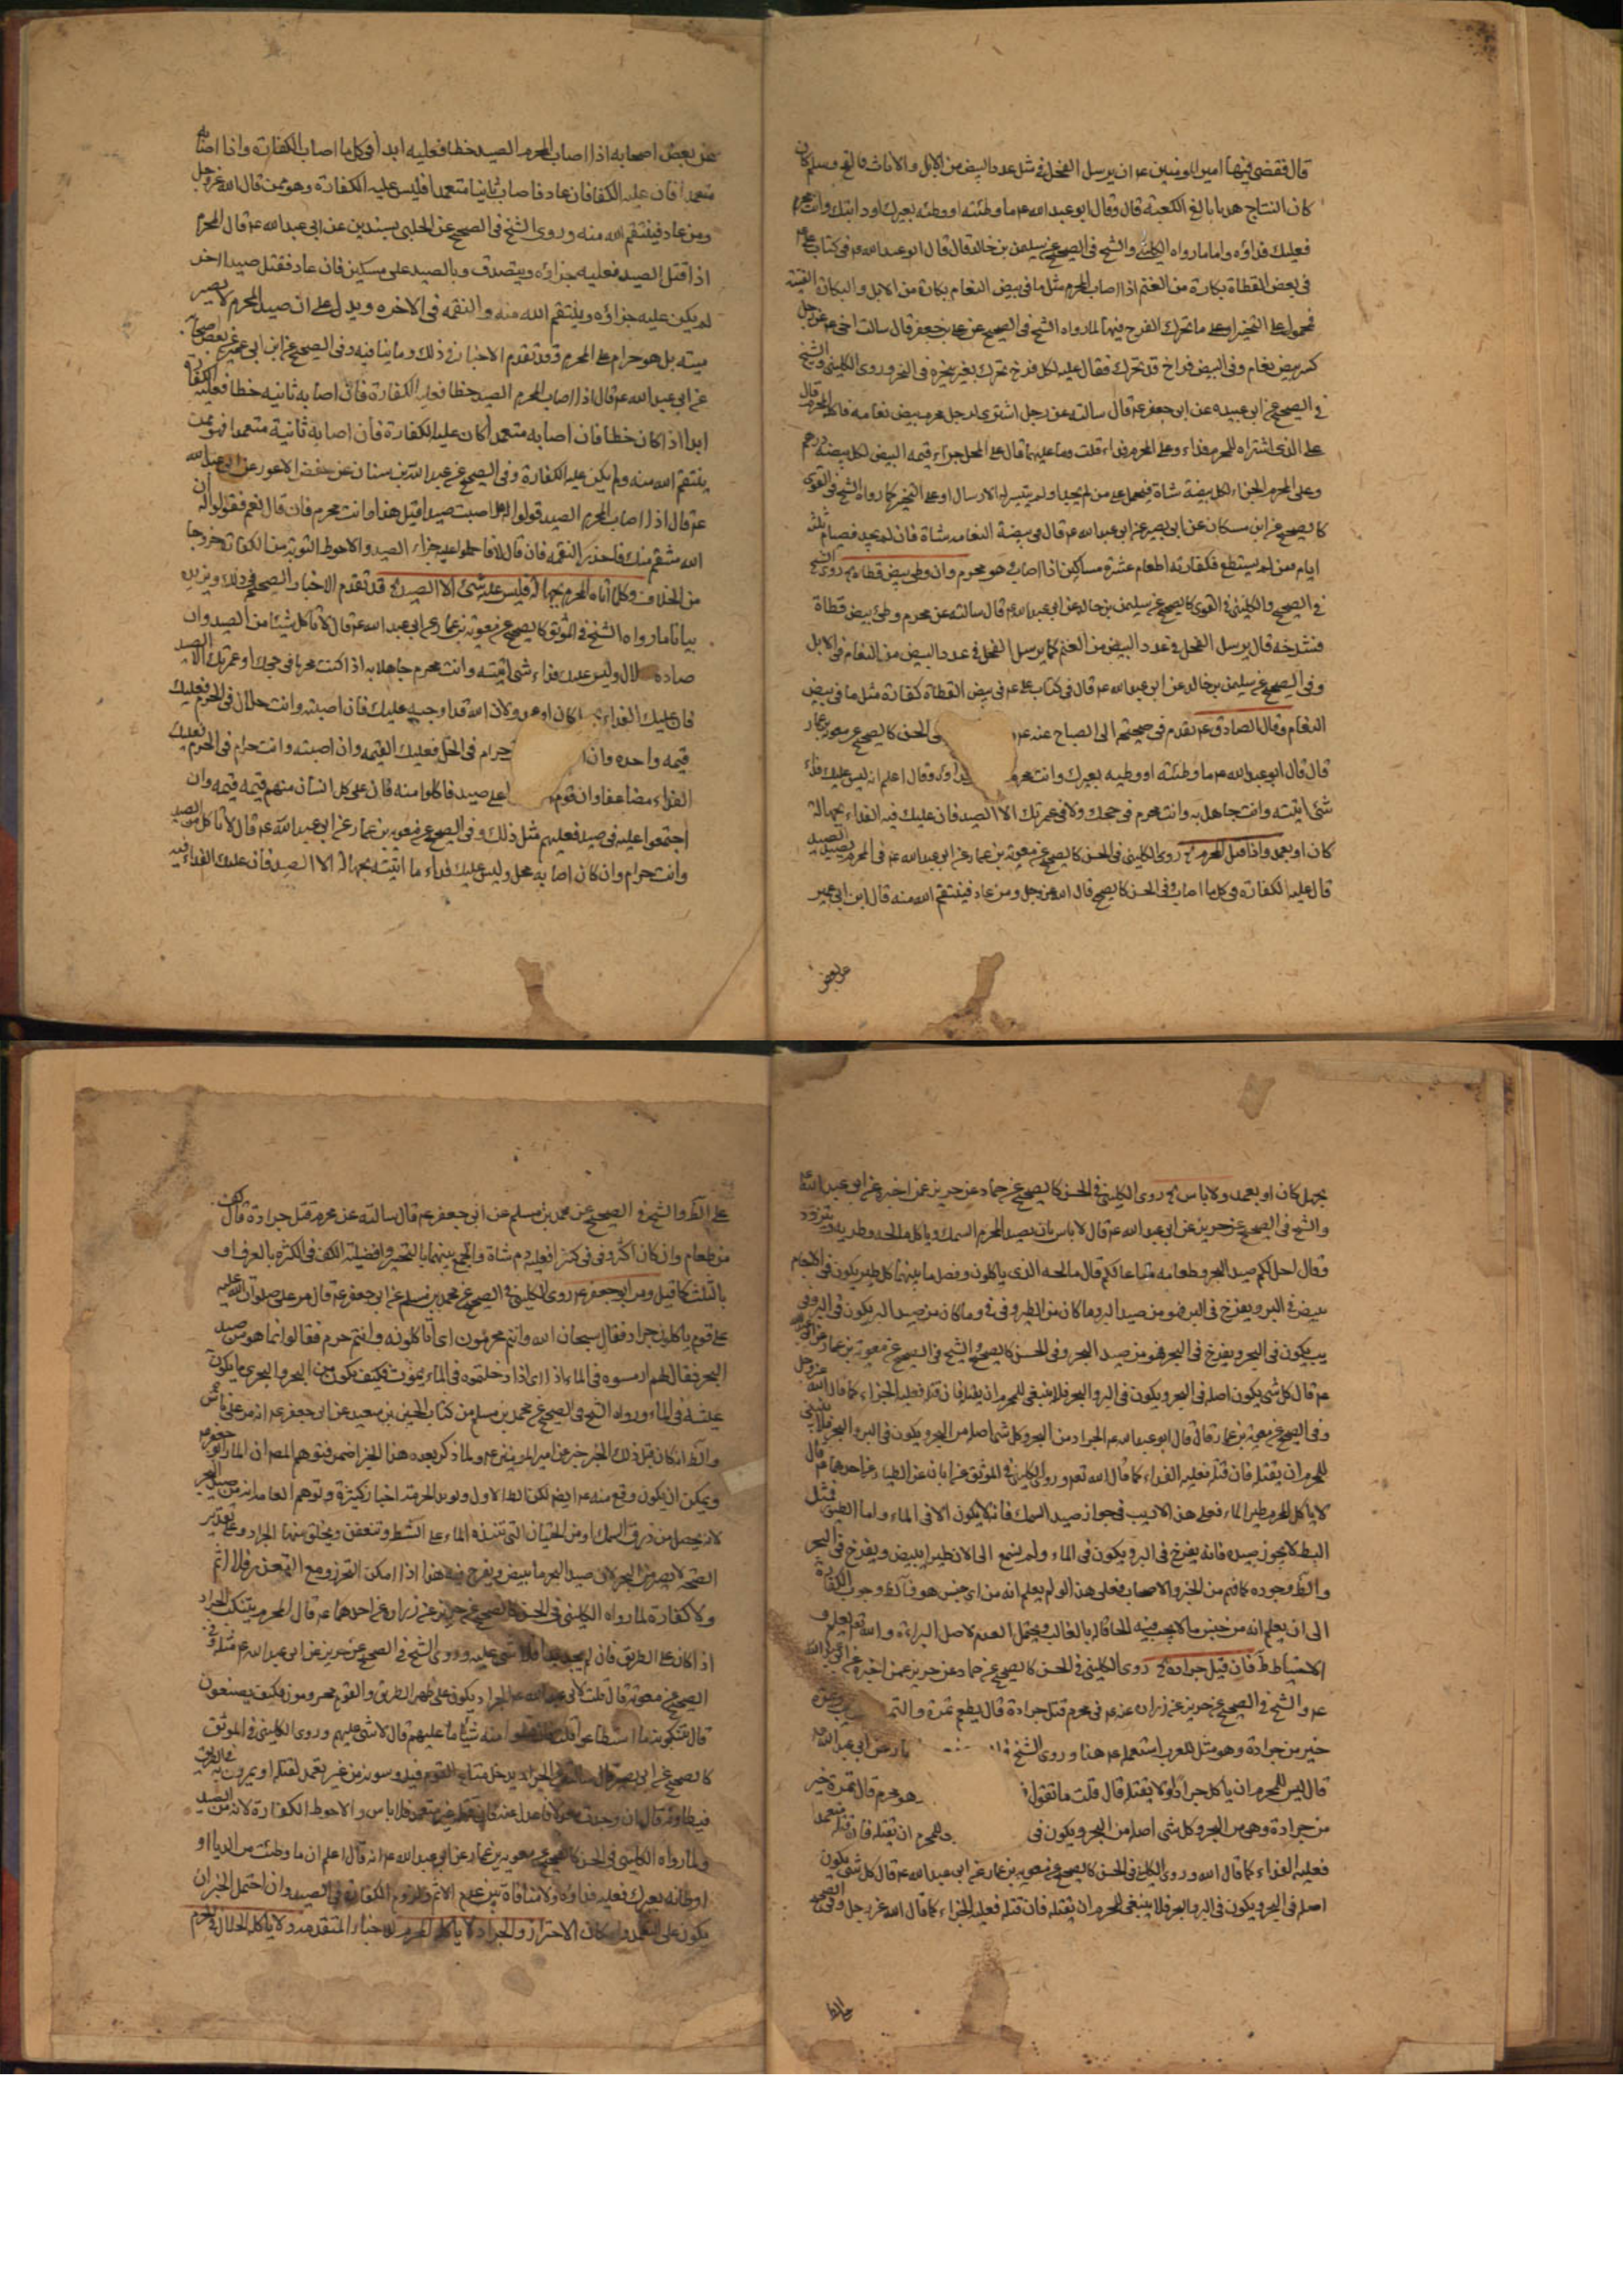 قال فقضى فيها امير المومنين ع ان يرسل الفحل في مثل عدد البيض من الابل والاناث فما لقح وسلم كان
كان النتاج هديا بالغ الكعبة قال وقال ابو عبد الله ع ما وطئته او وطئه بعيرك او دابتك وانت محرم
فعليك فداؤه واما ما رواه الكليني والشيخ في الصحيح عن سليمن بن خالد قال قال ابو عبد الله ع في كتاب علي ع
في بعض القطاة بكارة من الغنم اذا اصاب المحرم مثل ما في بيض النعام بكارة من الابل والبكارة الفتية
فمحمول على التخيير او على ما تحرك الفرخ فيها لما رواه الشيخ في الصحيح عن علي بن جعفر قال سالت اخي ع عن رجل
كسر بيض نعام وفي البيض فراخ قد تحرك فقال عليه لكل فرخ تحرك بعير ينحره في المنحر وروى الكليني والشيخ
في الصحيح عن ابي عبيده عن ابي جعفر ع قال سالته عن رجل اشترى لرجل محرم بيض نعامه فاكله المحرم قال
على الذي اشتراه للمحرم فداء وعلى المحرم فداء قلت وما عليهما قال على المحل جزاء قيمه البيض لكل بيضة درهم
وعلى المحرم الجزاء لكل بيضة شاة فيحمل على من لم يجد او لم يتيسر له الارسال او على التخيير كما رواه الشيخ في القوي
كالصحيح عن ابن مسكان عن ابي بصير عن ابي عبد الله ع قال في بيضة النعامه شاة فان لم يجد فصيام ثلثة
ايام فمن لم يستطع فكفارته اطعام عشرة مساكين اذا اصابه وهو محرم وان وطي بيض قطاة روى الشيخ
في الصحيح والكليني في القوي كالصحيح عن سليمن بن خالد عن ابي عبد الله ع قال سالته عن محرم وطئ بيض قطاة
فشدخه قال يرسل الفحل في عدد البيض من الغنم كما يرسل الفحل في عدد البيض من النعام في الابل
وفي الصحيح عن سليمن بن خالد عن ابي عبد الله ع قال في كتاب علي ع في بيض القطاة كفارة مثل ما في بيض
النعام وقال الصادق ع تقدم في صحيحة ابي الصباح عنه ع في الحسن كالصحيح عن معوية بن عمار
قال قال ابو عبد الله ع ما وطئته او وطيه بعيرك وانت محرم فداؤه وقال اعلم انه ليس عليك فداء
شئ اتيته وانت جاهل به وانت محرم في حجك ولا في عمرتك الا الصيد فان عليك فيه الفداء بجهالة
كان او بعمد واذا قتل المحرم روى الكليني في الحسن كالصحيح عن معوية بن عمار عن ابي عبد الله ع في المحرم يصيد الصيد
قال عليه الكفارة في كل ما اصاب وفي الحسن كالصحيح قال الله عز وجل ومن عاد فينتقم الله منه قال ابن ابي عمير
عن بعض
عن بعض اصحابه اذا اصاب المحرم الصيد خطا فعليه ابدا في كل ما اصاب الكفارة واذا اصابه
متعمدا فان عليه الكفارة فان عاد فاصاب ثانيا متعمدا فليس عليه الكفارة وهو ممن قال الله عز وجل
ومن عاد فينتقم الله منه وروى الشيخ في الصحيح عن الحلبي بسندين عن ابي عبد الله ع قال المحرم
اذا قتل الصيد فعليه جزاؤه ويتصدق وبالصيد على مسكين فان عاد فقتل صيدا اخر
لم يكن عليه جزاؤه وينتقم الله منه والنقمه في الاخره ويدل على ان صيد المحرم لا يصير
ميته بل هو حرام على المحرم وقد تقدم الاخبار في ذلك وما ينافيه وفي الصحيح عن ابن ابي عمير عن بعض اصحابه
عن ابي عبد الله ع قال اذا اصاب المحرم الصيد خطا فعليه الكفارة فان اصابه ثانيه خطا فعليه الكفارة
ابدا اذا كان خطا فان اصابه متعمدا كان عليه الكفارة فان اصابه ثانية متعمدا فهو ممن
ينتقم الله منه ولم يكن عليه الكفارة وفي الصحيح عن عبد الله بن سنان عن حفص الاعور عن ابي عبد الله
ع قال اذا اصاب المحرم الصيد قولوا له هل اصبت صيدا قبل هذا وانت محرم فان قال نعم فقولوا له ان
الله منتقم منك فاحذر النقمه فان قال لا فاحكموا عليه جزاء الصيد والاحوط التوبة مع الكفارة خروجا
من الخلاف وكل ما اتاه المحرم بجهالة فليس عليه شئ الا الصيد قد تقدم الاخبار الصحيحة في ذلك ويزيده
بيانا ما رواه الشيخ في الموثق كالصحيح عن معوية بن عمار عن ابي عبد الله ع قال لا تاكل شيئا من الصيد وان
صاده حلال وليس عليك فداء شئ اتيته وانت محرم جاهلا به اذا كنت محرما في حجك او عمرتك الا الصيد
فان عليك الفداء كان او عمد ولان الله قد اوجبه عليك فان اصبته وانت حلال في الحرم فعليك
قيمه واحده وان حرام في الحل فعليك القيمه وان اصبته وانت حرام في الحرم فعليك
الفداء مضاعفا وان قوم على صيد فاكلوا منه فان على كل انسان منهم قيمه قيمه وان
اجتمعوا عليه في صيد فعليهم مثل ذلك وفي الصحيح عن معوية بن عمار عن ابي عبد الله ع قال لا تاكل من الصيد
وانت حرام وان كان اصابه محل وليس عليك فداء ما اتيته بجهالة الا الصيد فان عليك الفداء فيه
بجهل كان او بعمد ولا باس روى الكليني في الحسن كالصحيح عن حماد عن حريز عمن اخبره عن ابي عبد الله ع
والشيخ في الصحيح عن حريز عن ابي عبد الله ع قال لا باس بان يصيد المحرم السمك وياكل مالحه وطريه ويتزود
وقال احل لكم صيد البحر وطعامه متاعا لكم قال مالحه الذي ياكلون وفصل ما بينهما كل طير يكون في الاجام
يبيض في البر ويفرخ في البر فهو من صيد البر وما كان من الطير وفي وما كان من صيد البر يكون في البر وفي
يبيض في البحر ويفرخ في البحر فهو من صيد البحر وفي الحسن كالصحيح والشيخ في الصحيح عن معوية بن عمار عن ابي عبد الله
ع قال كل شئ يكون اصله في البحر ويكون في البر والبحر فلا ينبغي للمحرم ان يقتله فان قتله فعليه الجزاء كما قال الله عز وجل
وفي الصحيح عن معوية بن عمار قال قال ابو عبد الله ع الجراد من البحر وكل شئ اصله من البحر ويكون في البر والبحر فلا ينبغي
للمحرم ان يقتله فان قتله فعليه الفداء كما قال الله تعالى وروى الكليني في الموثق عن ابان عن الطيار عن احدهما ع قال
لا ياكل المحرم طير الماء فعلى هذا لا ريب في جواز صيد السمك فانه لا يكون الا في الماء واما الطير فمثل
البط لا يجوز صيده فانه يفرخ في البر ويكون في الماء ولم يسمع الى الان طير يبيض ويفرخ في البحر
والظ وجوده كما فهم من الخبر والاصحاب فعلى هذا لو لم يعلم انه من اي جنس هو فالظ وجوب الكفارة
الى ان يعلم انه من جنس ما لا يجب فيه الحاقا له بالغالب ويحتمل العدم لاصل البراءة والله تعالى يعلم و
الاحتياط ظ فان قتل جرادة روى الكليني في الحسن كالصحيح عن حماد عن حريز عمن اخبره عن ابي عبد الله
ع والشيخ في الصحيح عن حريز عن زرارة عنه ع في محرم قتل جرادة قال يطعم تمرة والتمرة
خير من جرادة وهو مثل للعرب استعمله ع هنا وروى الشيخ عمار عن ابي عبد الله ع
قال ليس للمحرم ان ياكل جرادا ولا يقتله قال قلت ما تقول في وهو محرم قال تمرة خير
من جرادة وهي من البحر وكل شئ اصله من البحر ويكون في للمحرم ان يقتله فان قتله متعمدا
فعليه الفداء كما قال الله وروى الكليني في الحسن كالصحيح عن معوية بن عمار عن ابي عبد الله ع قال كل شئ يكون
اصله في البحر ويكون في البر والبحر فلا ينبغي للمحرم ان يقتله فان قتله فعليه الجزاء كما قال الله عز وجل وفي الصحيح
على الظ
على الظ والشيخ في الصحيح عن محمد بن مسلم عن ابي جعفر ع قال سالته عن محرم قتل جرادة قال كف
من طعام وان كان اكثر وفي في كثير فعليه دم شاة والجمع بينهما بالتخيير وافضلية الكف في الكثرة بالعرف او
بالثلث كما قيل ومر ابو جعفر ع روى الكليني في الصحيح عن محمد بن مسلم عن ابي جعفر ع قال مر علي صلوات الله عليه
على قوم ياكلون جرادا فقال سبحان الله وانتم محرمون اي تاكلونه وانتم حرم فقالوا انما هو من صيد
البحر فقال لهم ارمسوه في الماء اذا اي اذا دخلتموه في الماء يموت فكيف يكون من البحر والبحري ما يكون
عيشه في الماء ورواه الشيخ في الصحيح عن محمد بن مسلم من كتاب الحسين بن سعيد عن ابي جعفر ع انه مر على ناس
والظ انه كان قبل ذلك الخبر خبر عن امير المومنين ع ولما ذكر بعده هذا الخبر اضمر فتوهم المص ان المار ابو جعفر ع
ويمكن ان يكون وقع منه ع ايضا لكن الظ الاول ويؤيد الحرمة اخبار كثيرة وتوهم العامة انه من صيد البحر
لانه يحصل من ذرق السمك او من الحيتان التي تنبذه الماء على الشط وتتعفن ويخلق منها الجراد وعلى تقدير
الصحة لا يصير من البحر لان صيد البحر ما يبيض ويفرخ فيه هذا اذا امكن التحرز ومع التعذر فلا اثم
ولا كفارة لما رواه الكليني في الحسن كالصحيح عن حريز عن زرارة عن احدهما ع قال المحرم يتنكب الجراد
اذا كان على الطريق فان لم يجد بدا فقتل فلا شئ عليه وروى الشيخ في الصحيح عن حريز عن ابي عبد الله ع مثله وفي
الصحيح عن معوية قال قلت لابي عبد الله ع الجراد يكون على ظهر الطريق والقوم محرمون فكيف يصنعون
قال يتنكبونه ما استطاعوا قلت فان قتلوا منه شيئا ما عليهم قال لا شئ عليهم وروى الكليني في الموثق
كالصحيح عن ابي بصير قال سالته عن الجراد يدخل متاع القوم فيدوسونه من غير تعمد لقتله او يمرون به في الطريق
فيطاونه قال ان وجدت معدلا فاعدل عنه فان قتلته غير متعمد فلا باس والاحوط الكفارة لانه من الصيد
ولما رواه الكليني في الحسن كالصحيح عن معوية بن عمار عن ابي عبد الله ع انه قال اعلم ان ما وطئت من الدبا او
اوطاته بعيرك فعليك فداؤه ولا منافاة بين عدم الاثم ولزوم الكفارة في الصيد وان احتمل الخبران
يكون على التعمد وامكان الاحتراز والجراد لا ياكله المحرم للاخبار المتقدمة ولا ياكله الحلال في الحرم